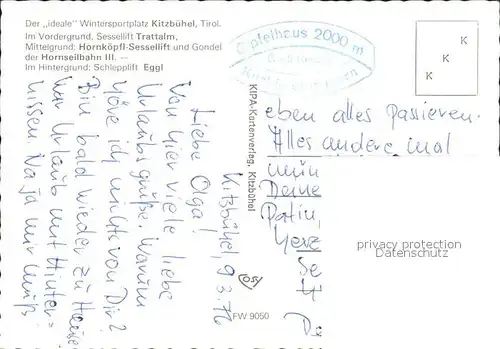 Der „ideale" Wintersportplatz Kitzbühel, Tirol.
Im Vordergrund, Sessellift Trattalm,
Mittelgrund: Hornköpfl-Sessellift und Gondel
der Hornseilbahn III. —
Im Hintergrund: Schlepplift Eggl
Gipfelhaus 2000 m
K
K
K
KIPA-Kartenverlag, Kitzbühel
FW 9050
Kitzbühel, 9.3.76
Liebe Olga!
Von hier viele liebe
Urlaubsgrüße. Warum
höre ich nichts von Dir?
Bin bald wieder zu Hause
war Urlaub mit Hinter=
nissen. Na ja mir muß
eben alles passieren.
Alles andere mal
Deine
Patin,
privacy protection
Datenschutz